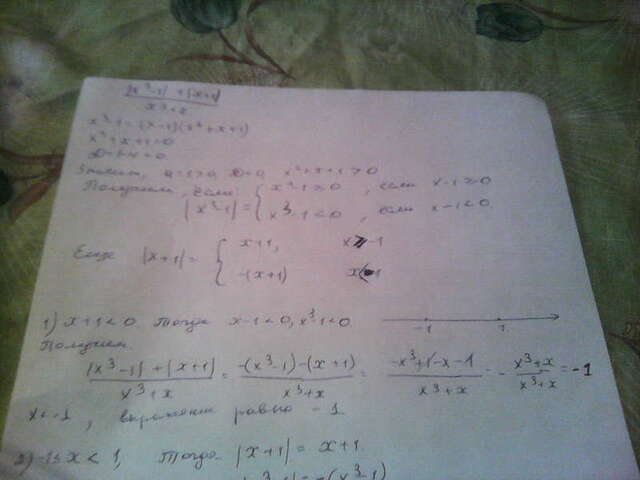 |x³-1| + |x+1| / x³+x
x³-1=(x-1)(x²+x+1)
x²+x+1=0
D=1-4<0
Значит, a=1>0, D<0, x²+x+1>0
Получаем, если
|x³-1| = { x³-1≥0, если x-1≥0
x³-1<0, если x-1<0.
Еще |x+1| = { x+1, x≥-1
-(x+1) x<-1
1) x+1<0. Тогда x-1<0, x³-1<0.
-1 1
Получаем.
|x³-1| + |x+1| / x³+x = -(x³-1)-(x+1) / x³+x = -x³+1-x-1 / x³+x = - x³+x / x³+x = -1
x<-1, выражение равно -1.
2) -1≤x<1, Тогда |x+1| = x+1.
|x³-1| = -(x³-1)